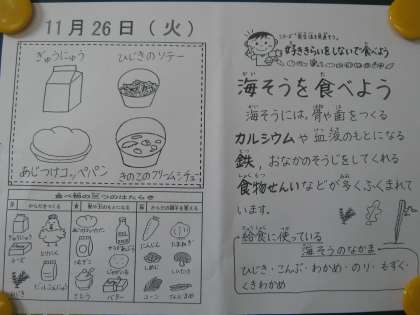 11月26日(火)
ぎゅうにゅう
ひじきのソテー
あじつけコッペパン
きのこのクリームシチュー
食べ物の三つのはたらき
ぎゅうにゅう
とりにく
にんじん
たまねぎ
しめじ
コーン
さとう
バター
好ききらいをしないで食べよう
海そうを食べよう
海そうには、骨や歯をつくる
カルシウムや血液のもとになる
鉄、おなかのそうじをしてくれる
食物せんいなどが多くふくまれて
います。
給食に使っている
海そうのなかま
ひじき・こんぶ・わかめ・のり・もずく・
くきわかめ